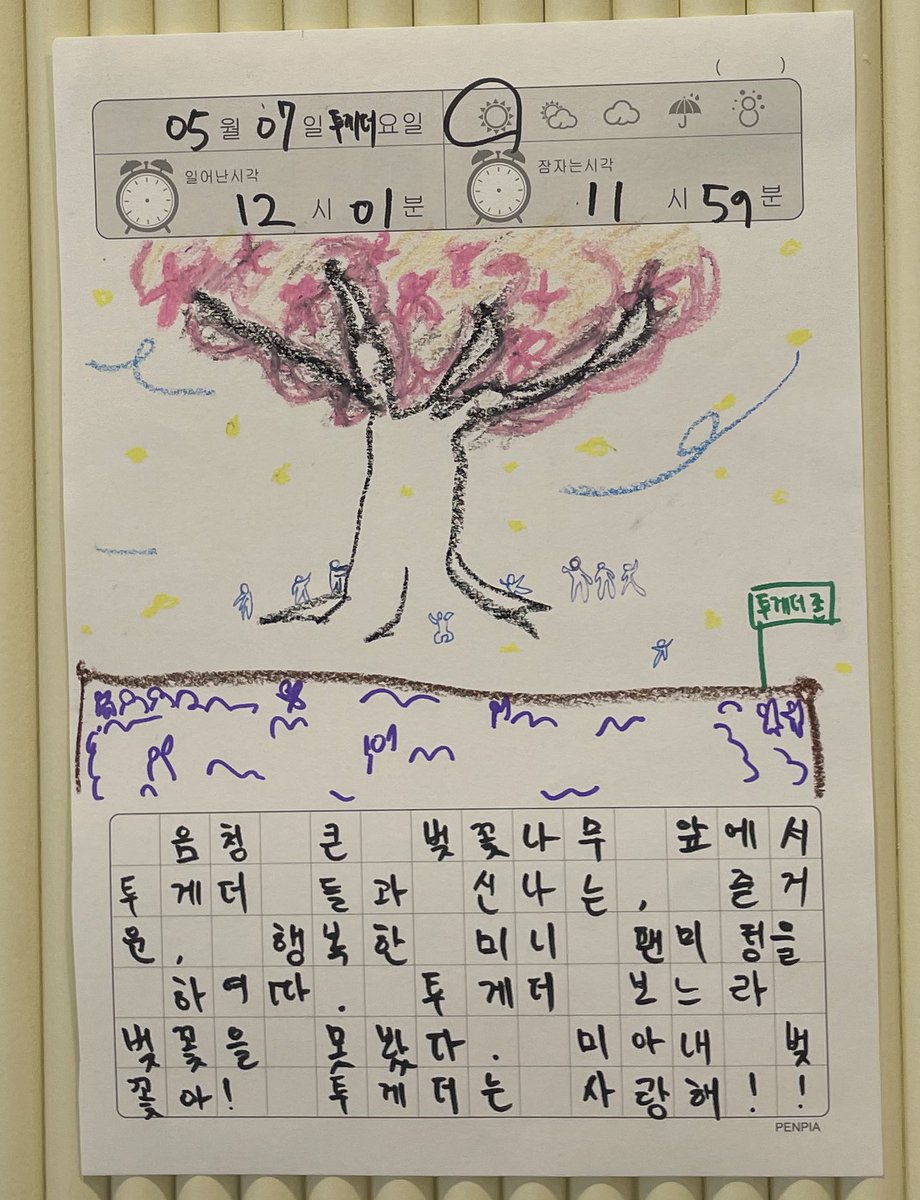 ( )
05 월 07 일 투게더 요일
일어난시각 12 시 01 분
잠자는시각 11 시 59 분
투게더 존
움청 큰 벚꽃나무 앞에서
투게더 들과 신나는, 즐거
운, 행복한 미니 팬미텅을
하여따. 투게더 보느라
벚꽃을 못봤다. 미아내 벚
꽃아! 투게더는 사랑해!!
PENPIA